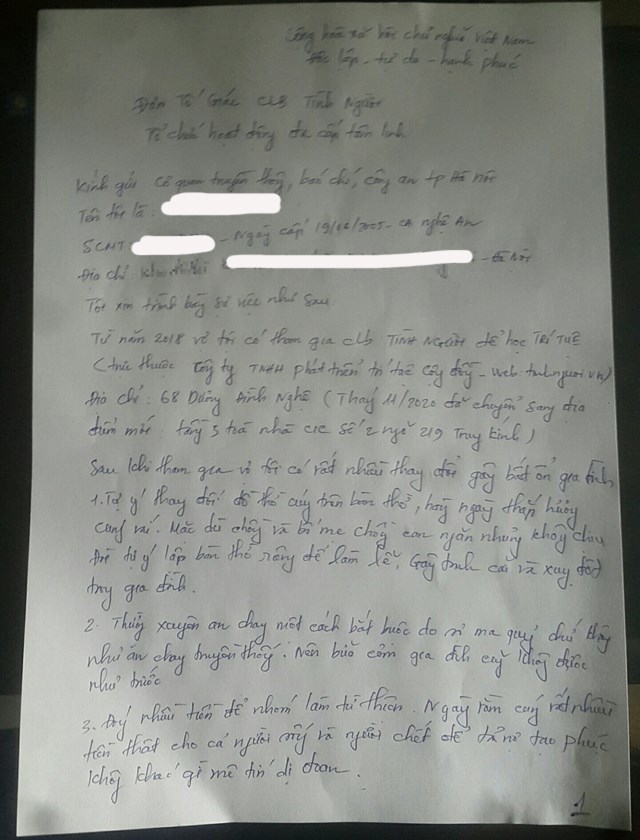 Cộng hòa xã hội chủ nghĩa Việt Nam
Độc lập - tự do - hạnh phúc
Đơn Tố Giác CLB Tình Người
Tổ chức hoạt động đa cấp tâm linh
Kính gửi cơ quan truyền thông, báo chí, công an tp Hà Nội
Tên tôi là:
SCMT - Ngày cấp 19/06/2005 - CA nghệ An
Địa chỉ: - Hà Nội
Tôi xin trình bày sự việc như sau.
Từ năm 2018 vợ tôi có tham gia CLB TÌNH NGƯỜI để học TRÍ TUỆ
(trực thuộc Công ty TNHH phát triển trí tuệ cộng đồng - Web: tinhnguoi.vn)
Địa chỉ: 68 Dương Đình Nghệ (Tháng 11/2020 đã chuyển sang địa
điểm mới: tầng 5 toà nhà CIC số 2 ngõ 219 Trung kính)
Sau khi tham gia vợ tôi có rất nhiều thay đổi gây bất ổn gia đình
1. Tự ý thay đổi đồ thờ cúng trên bàn thờ, hàng ngày thắp hương
cúng vái. Mặc dù chồng và bố mẹ chồng can ngăn nhưng không chịu
mà tự ý lập bàn thờ riêng để làm lễ, Gây tranh cãi và xung đột
trong gia đình.
2. Thường xuyên ăn chay một cách bắt buộc do sợ ma quỷ chứ không
như ăn chay truyền thống. Nên bữa cơm gia đình cũng không được
như trước
3. nhiều tiền để nhóm làm từ thiện. Ngày rằm cúng rất nhiều
tiền thật cho cả người sống và người chết để trả nợ tạo phúc
không khác gì mê tín dị đoan.
1